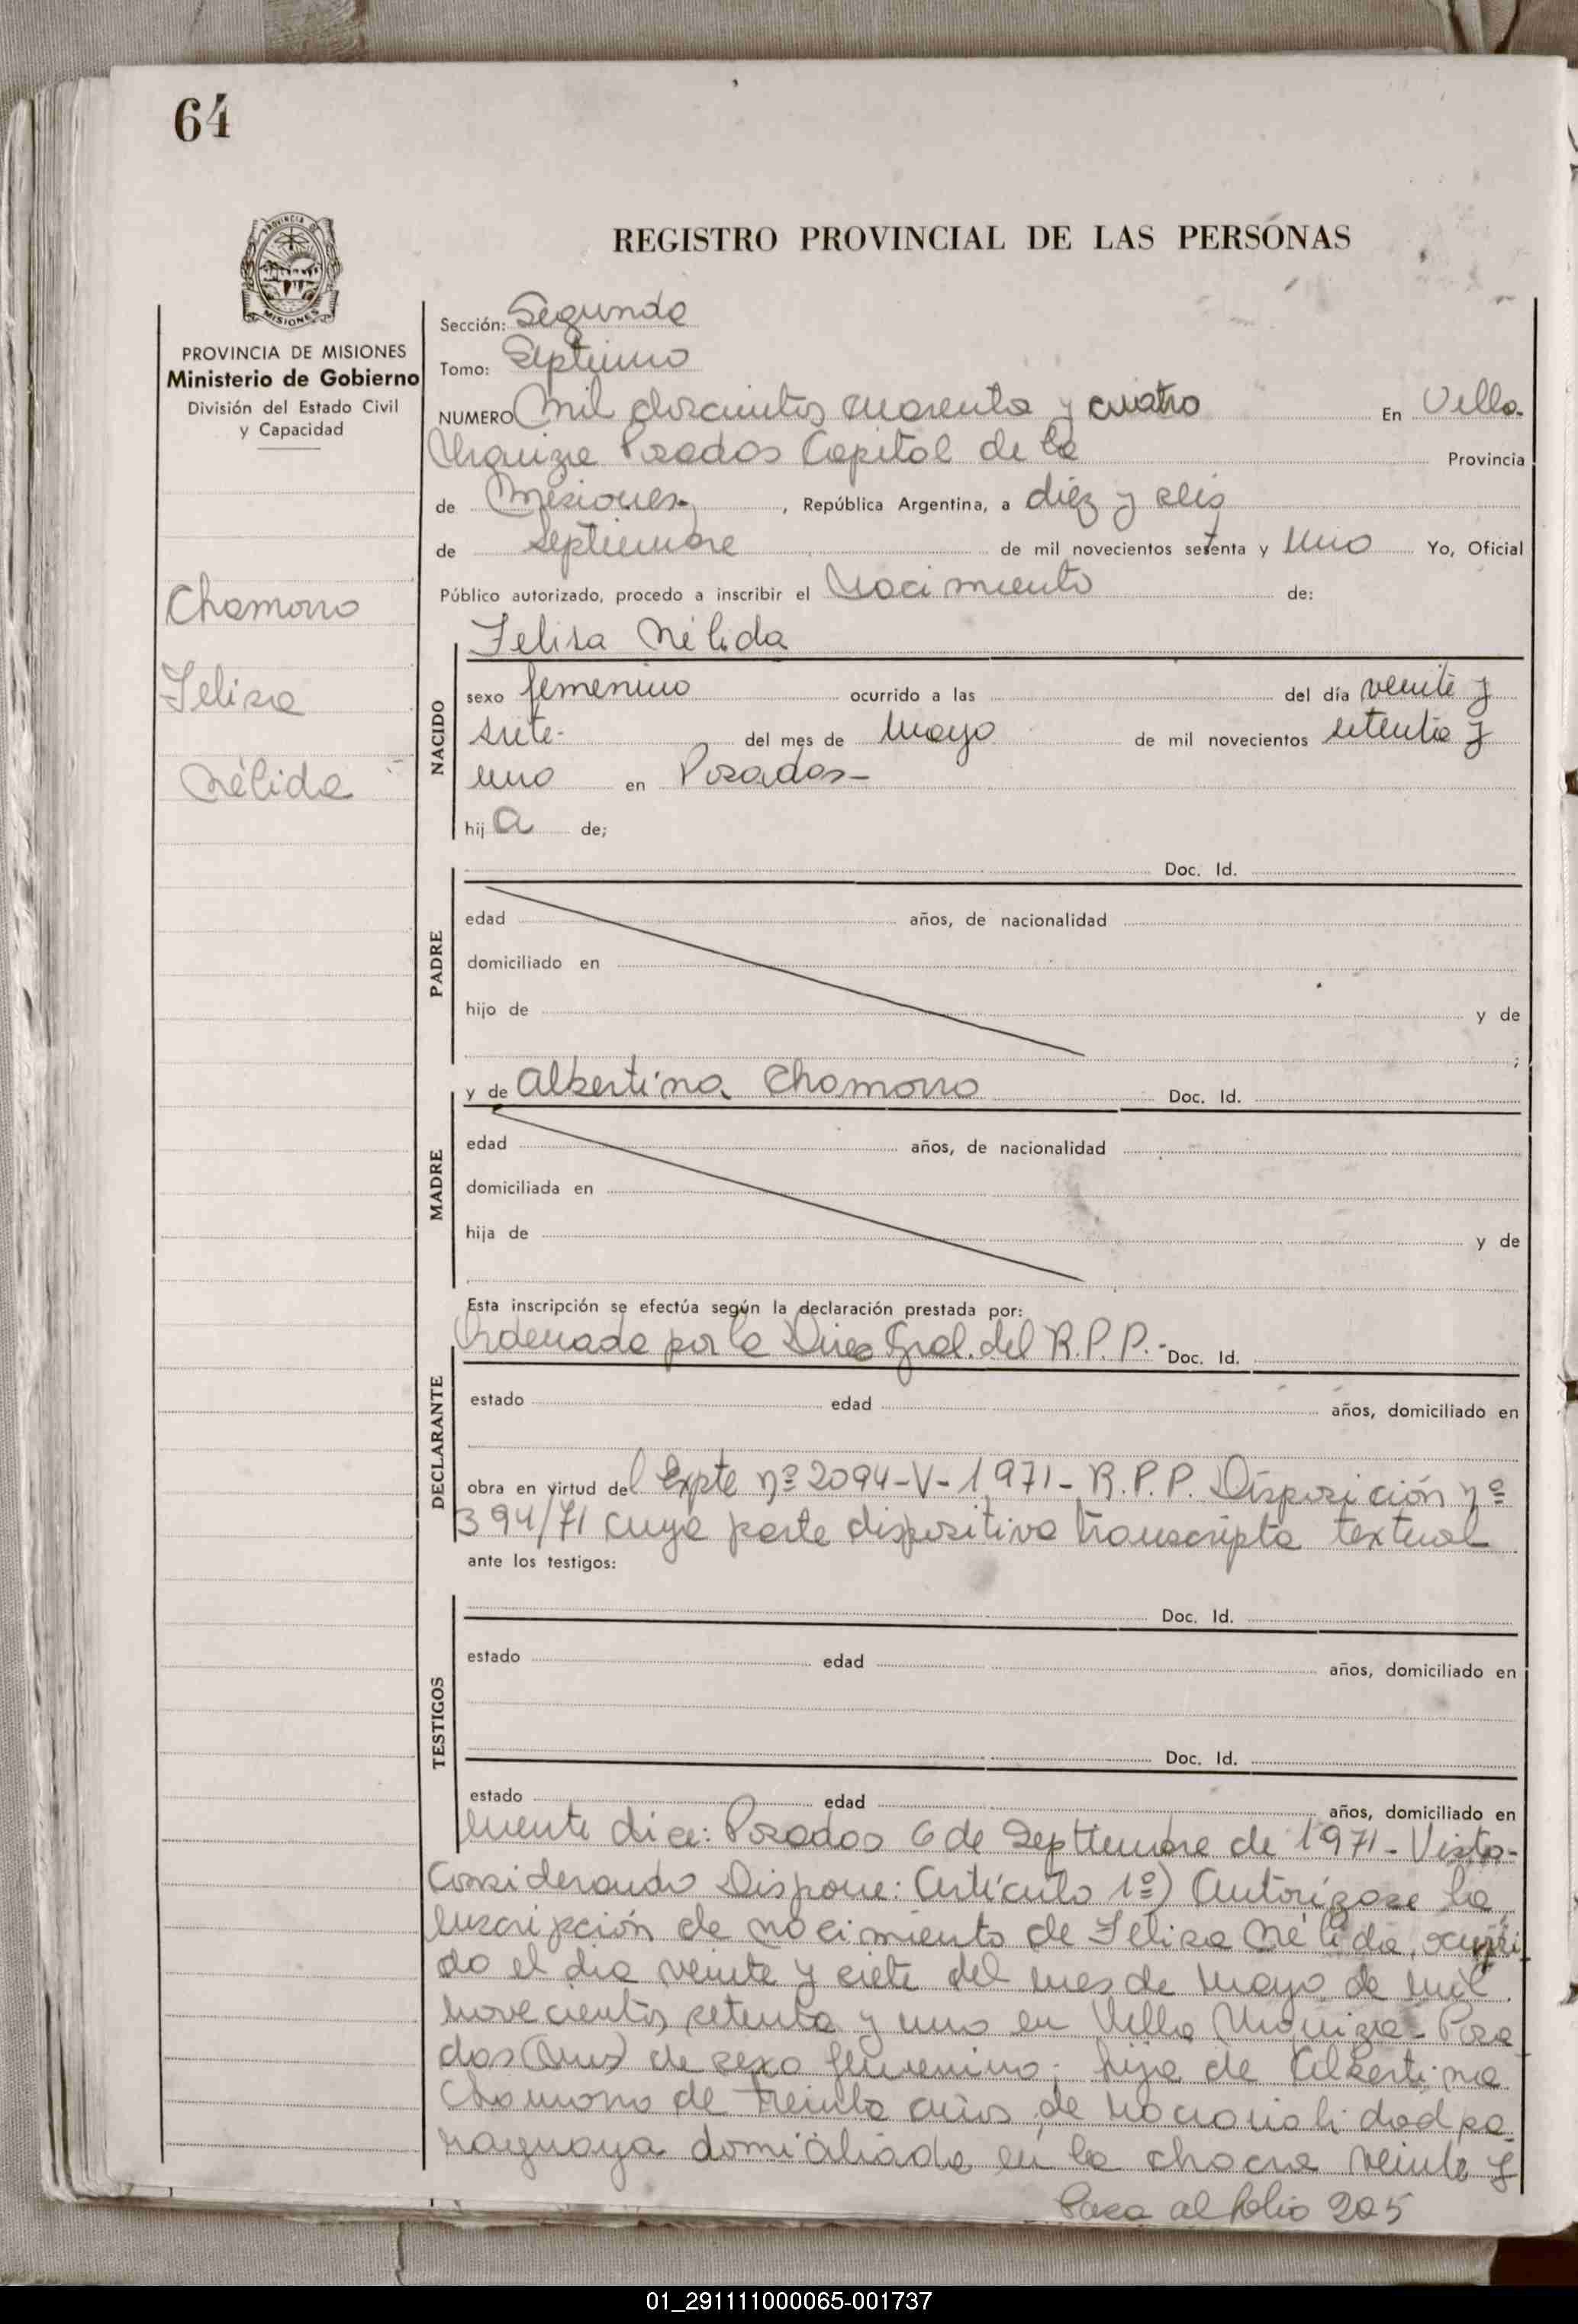 64
PROVINCIA
MISIONES
REGISTRO PROVINCIAL DE LAS PERSONAS
PROVINCIA DE MISIONES
Ministerio de Gobierno
División del Estado Civil
y Capacidad
Chamorro
Felisa
Nélida
Sección: Segunda
Tomo: Septimo
NUMERO Mil doscientos cuarenta y cuatro En Villa
Urquiza Posadas Capital de la Provincia
de Misiones , República Argentina, a diez y seis
de septiembre de mil novecientos setenta y uno Yo, Oficial
Público autorizado, procedo a inscribir el Nacimiento de:
NACIDO
Felisa Nélida
sexo femenino ocurrido a las del día veinte y
siete- del mes de Mayo de mil novecientos setenta y
uno en Posadas-
hij a de;
PADRE
Doc. Id.
edad años, de nacionalidad
domiciliado en
hijo de y de
;
MADRE
y de Albertina Chamorro Doc. Id.
edad años, de nacionalidad
domiciliada en
hija de y de
DECLARANTE
Esta inscripción se efectúa según la declaración prestada por:
Ordenada por la Direc Gral. del R.P.P.- Doc. Id.
estado edad años, domiciliado en
obra en virtud del Expte nº 2094-V-1971- R.P.P. Disposición nº
394/71 cuya parte dispositiva transcripta textual
ante los testigos:
TESTIGOS
Doc. Id.
estado edad años, domiciliado en
Doc. Id.
estado edad años, domiciliado en
mente dice: Posadas 6 de Septiembre de 1971- Visto-
Considerando Dispone: Artículo 1º) Autorízase la
inscripción de nacimiento de Felisa Nélida, ocurri
do el dia veinte y siete del mes de Mayo de mil
novecientos setenta y uno en Villa Urquiza- Posa
das (Mnes) de sexo femenino; hija de Albertina
Chamorro de treinta años de nacionalidad pa
raguaya domiciliada en la chacra veinte y
Pasa al folio 205
01_291111000065-001737